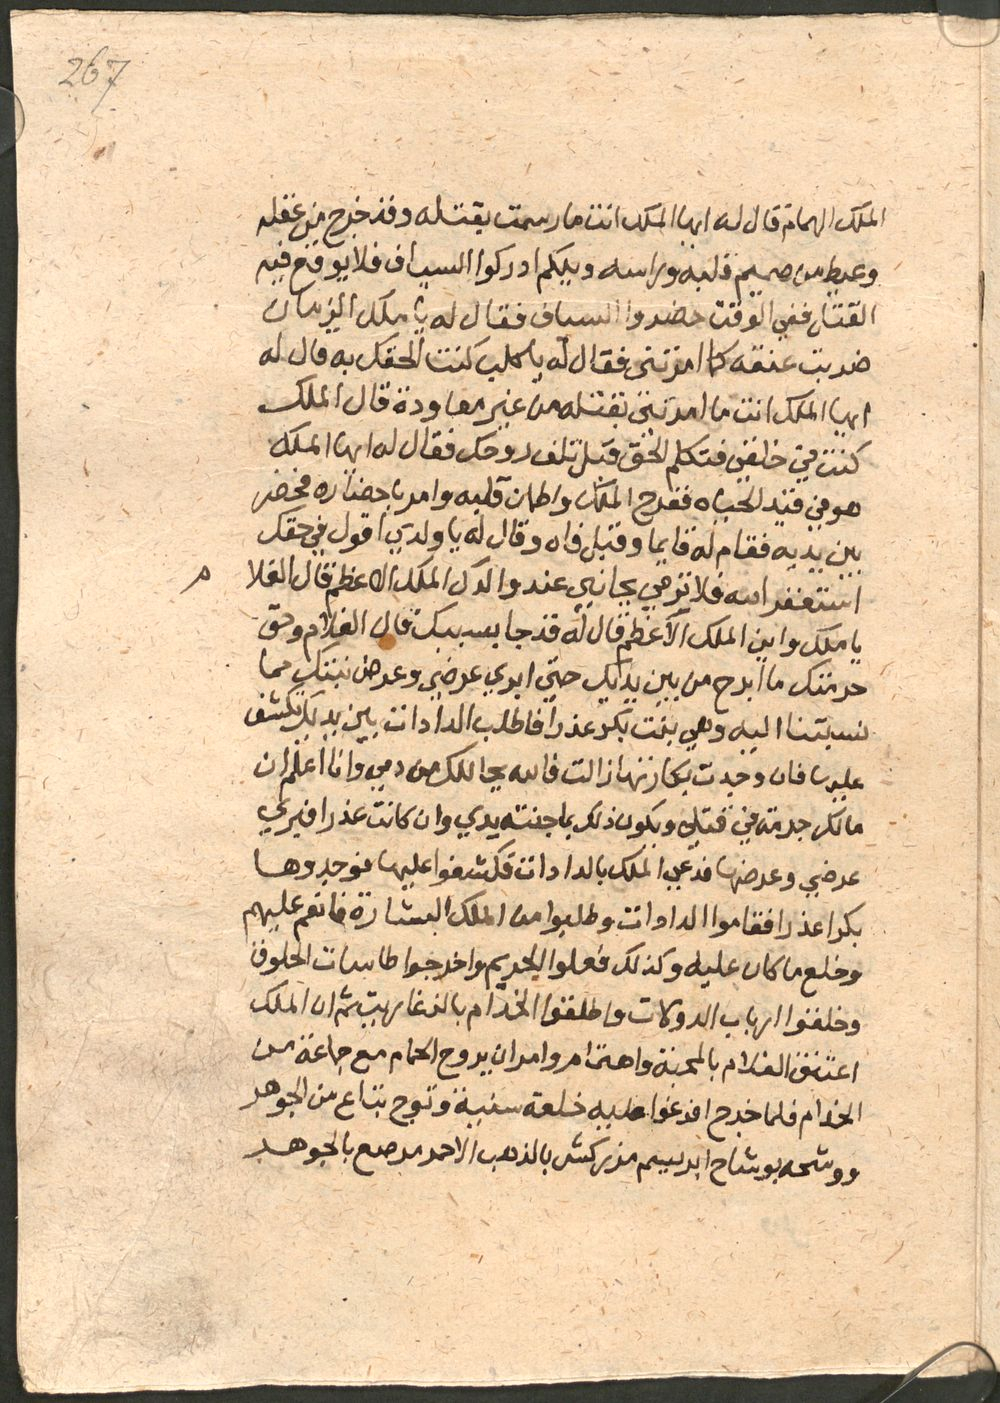 267
الملك الهمام قال له ايها الملك انت ما رسمت بقتله وقد خرج من عقله
وعيط من صميم قلبه وراسه ويلكم ادركوا السياف فلا يوقع فيه
القتال ففي الوقت حضروا السياف فقال له يا ملك الزمان
ضربت عنقه كما امرتني فقال له يا كلب كنت الحقك به قال له
ايها الملك انت ما امرتني بقتله من غير معاودة قال الملك
كنت في خلقي فتكلم الحق قبل تلف روحك فقال له ايها الملك
هو في قيد الحياه ففرح الملك واطمان قلبه وامر باحضاره فحضر
بين يديه فقام له قايما وقبل فاه وقال له يا ولدي اقول في حقك
استغفر الله فلا ترمي بجانبي عند والدك الملك الاعظم قال الغلام
يا ملك واين الملك الاعظم قال له قد جا بسببك قال الغلام وحق
حرمتك ما ابرح من بين يدايك حتي ابري عرضي وعرض بنتك مما
نسبتنا اليه وهي بنت بكر عذرا فاطلب الدادات بين يديك يكشف
عليها فان وجدت بكارتها زالت فالله يجاللك من دمي وانا اعلم ان
مالك جرمة في قتلي ويكون ذلك بما جنته يدي وان كانت عذرا فبري
عرضي وعرضها فدعي الملك بالدادات فكشفوا عليها فوجدوها
بكرا عذرا فقاموا الدادات وطلبوا من الملك البشارة فانعم عليهم
وخلع ما كان عليه وكذلك فعلوا الحريم واخرجوا طاسات الخلوق
وخلقوا ارباب الدولات واطلقوا الخدام بالزغاريت ثم ان الملك
اعتنق الغلام بالمحبة واهتمام وامر ان يروح الحمام مع جماعة من
الخدام فلما خرج افرغوا عليه خلعة سنية وتوج بتاج من الجوهر
ووشحه بوشاح ابريسم مزركش بالذهب الاحمر مرصع بالجوهر